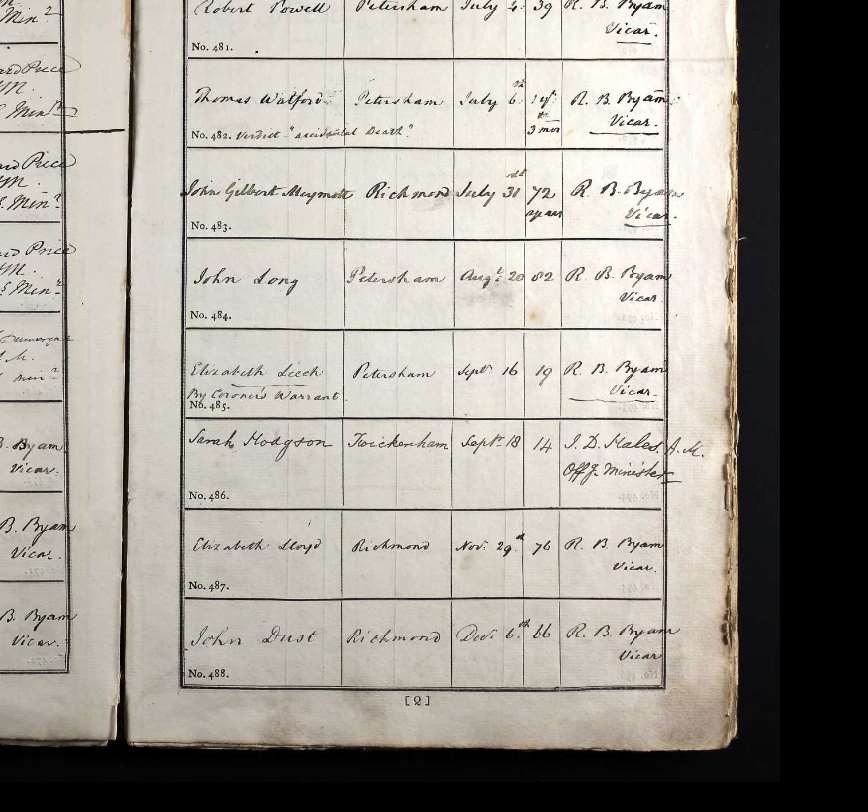 Min.r
ard Price
M.
Min.r
ard Price
M.
Min.r
ard Price
M.
Min.r
M.
Min.r
B. Byam
Vicar.
B. Byam
Vicar.
B. Byam
Vicar.
Robert Powell Petersham July 4. 39 R. B. Byam
Vicar.
No. 481.
Thomas Watford Petersham July 6th R. B. Byam
3 mos Vicar.
No. 482. Verdict "accidental Death"
John Gilbert Meymott Richmond July 31st 72 R. B. Byam
years Vicar.
No. 483.
John Long Petersham Augt. 20 82 R. B. Byam
Vicar.
No. 484.
Elizabeth Leech Petersham Septr. 16 19 R. B. Byam
By Coroner's Warrant. Vicar.
No. 485.
Sarah Hodgson Twickenham Septr. 18 14 J. D. Hales. A. M.
Offg. Minister
No. 486.
Elizabeth Lloyd Richmond Nov. 29th 76 R. B. Byam
Vicar.
No. 487.
John Dust Richmond Decr. 6th 66 R. B. Byam
Vicar
No. 488.
[Q]